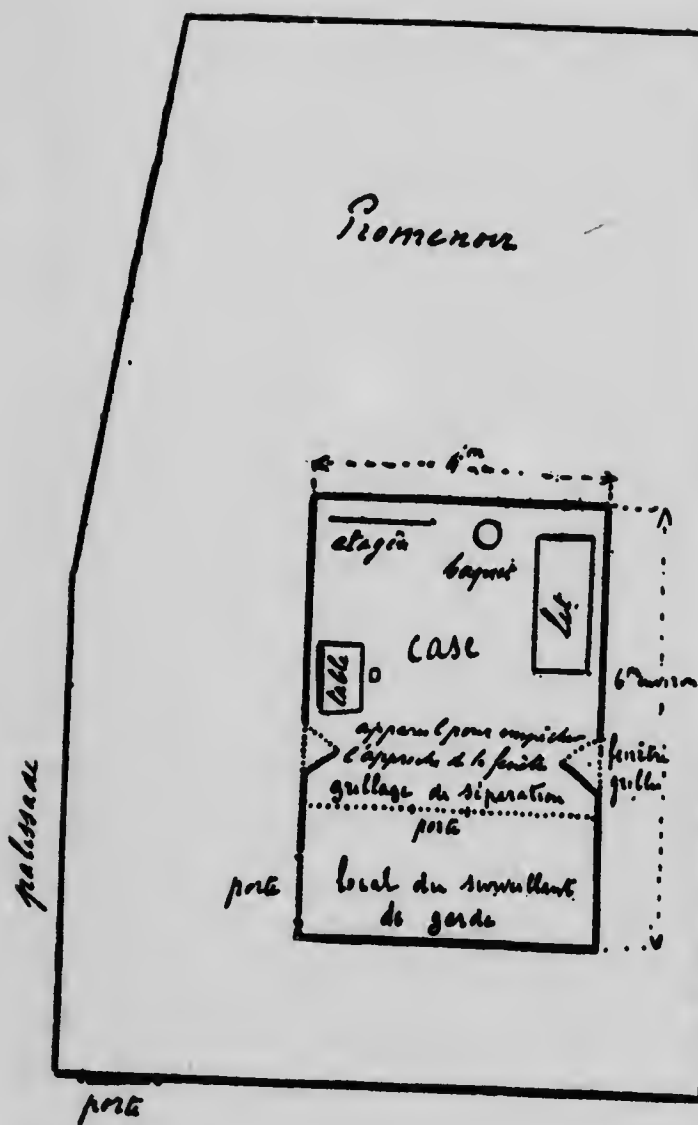 Promenoir
4m
étagère
baquet
lit
case
table
6m environ
appareil pour empêcher
l'approche de la fenêtre
fenêtre
grillée
grillage de séparation
porte
porte
local du surveillant
de garde
palissade
porte